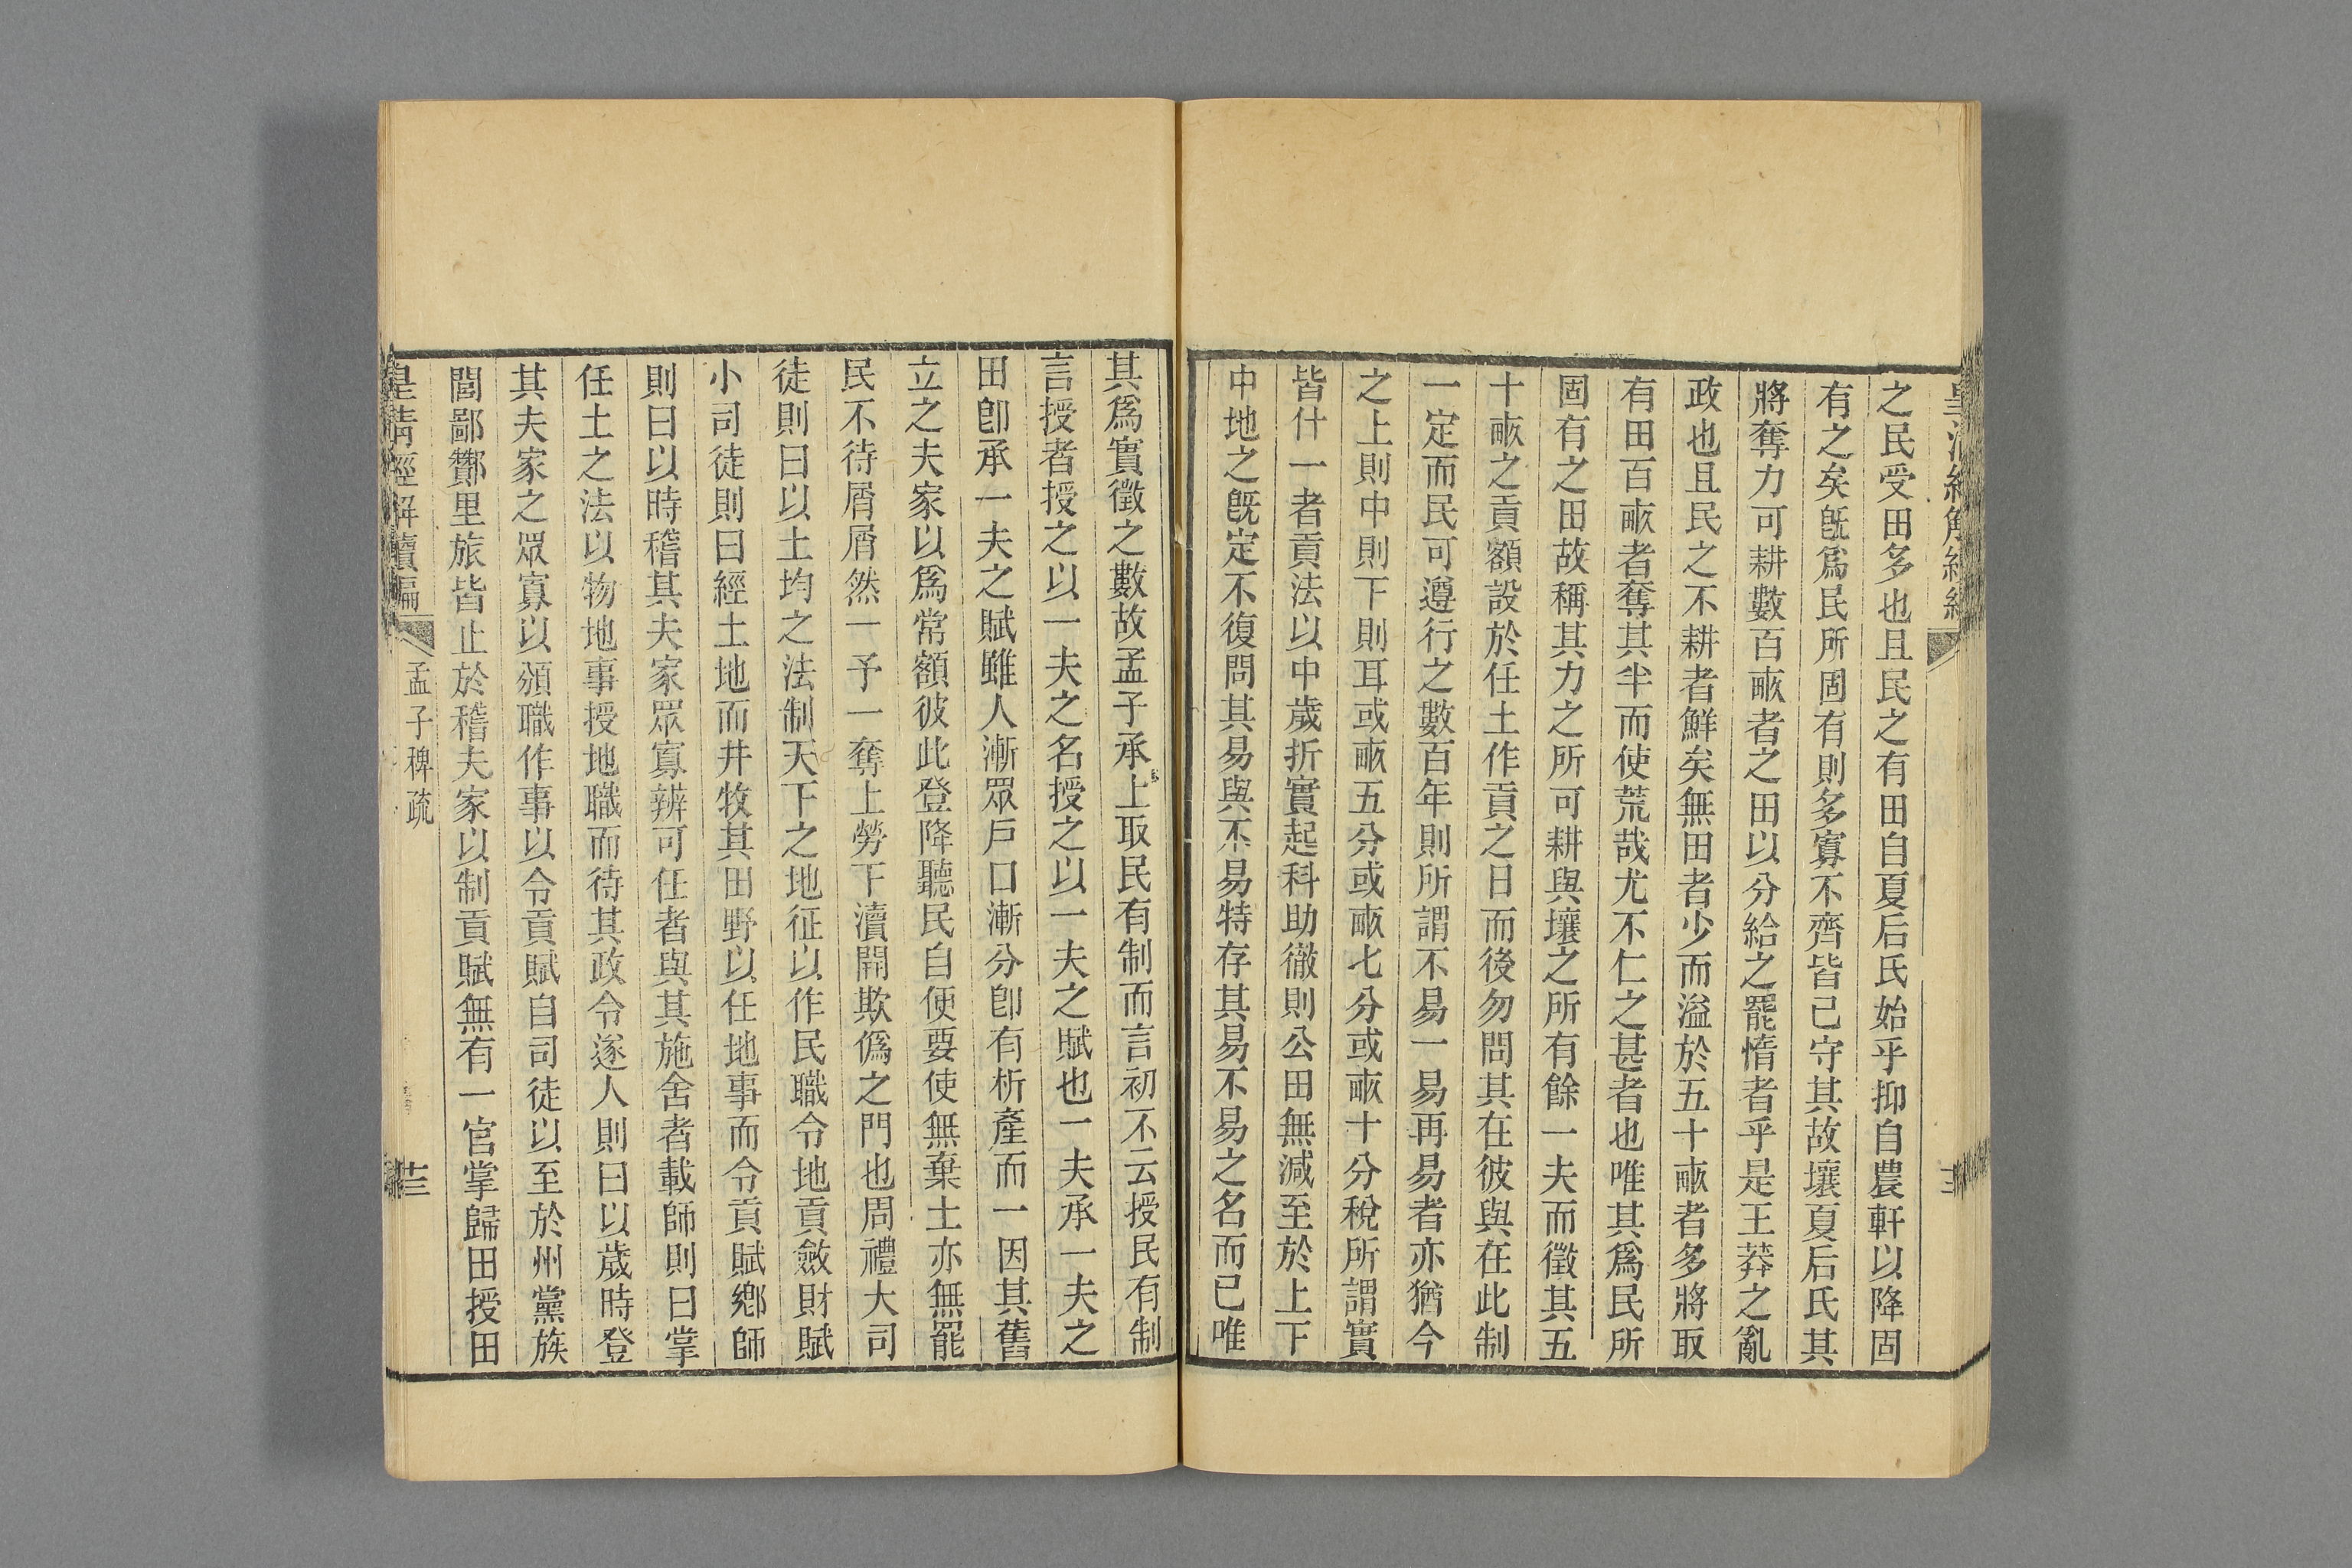 之民受田多也且民之有田自夏后氏始乎抑自農軒以降固
有之矣旣爲民所固有則多寡不齊皆已守其故壤夏后氏其
將奪力可耕數百畝者之田以分給之罷惰者乎是王莽之亂
政也且民之不耕者鮮矣無田者少而溢於五十畝者多將取
有田百畝者奪其半而使荒哉尤不仁之甚者也唯其爲民所
固有之田故稱其力之所可耕與壤之所有餘一夫而徵其五
十畝之貢額設於任土作貢之日而後勿問其在彼與在此制
一定而民可遵行之數百年則所謂不易一易再易者亦猶今
之上則中則下則耳或畝五分或畝七分或畝十分稅所謂實
皆什一者貢法以中歲折實起科助徹則公田無減至於上下
中地之旣定不復問其易與不易特存其易不易之名而已唯
其爲實徵之數故孟子承上取民有制而言初不云授民有制
言授者授之以一夫之名授之以一夫之賦也一夫承一夫之
田卽承一夫之賦雖人漸眾戶口漸分卽有析產而一因其舊
立之夫家以爲常額彼此登降聽民自便要使無棄土亦無罷
民不待屑屑然一予一奪上勞下瀆開欺僞之門也周禮大司
徒則曰以土均之法制天下之地征以作民職令地貢斂財賦
小司徒則曰經土地而井牧其田野以任地事而令貢賦鄉師
則曰以時稽其夫家眾寡辨可任者與其施舍者載師則曰掌
任土之法以物地事授地職而待其政令遂人則曰以歲時登
其夫家之眾寡以頒職作事以令貢賦自司徒以至於州黨族
閭鄙酇里旅皆止於稽夫家以制貢賦無有一官掌歸田授田
皇清經解續編
孟子稗疏